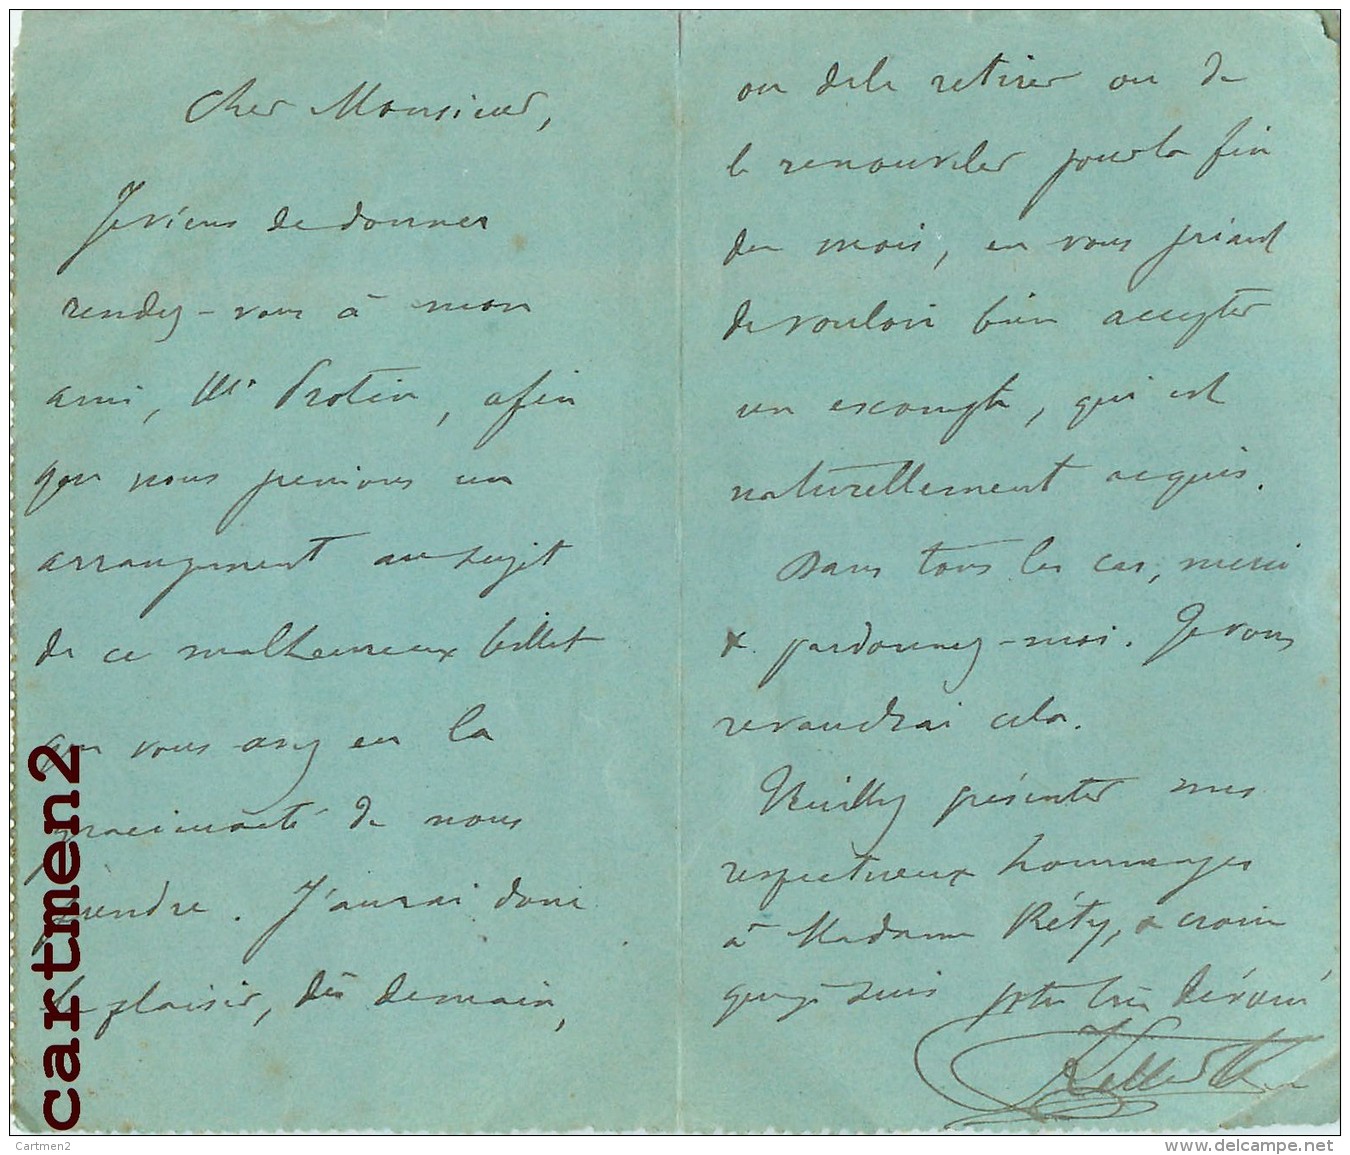 Cher Monsieur,
Je viens de donner
rendez-vous à mon
ami, Mr Protin, afin
que nous prenions un
arrangement au sujet
de ce malheureux billet
que vous avez eu la
gracieuseté de nous
prendre. J'aurai donc
le plaisir, dès demain,
ou de le retirer ou de
le renouveler pour la fin
du mois, en vous priant
de vouloir bien accepter
un escompte, qui est
naturellement acquis.
Dans tous les cas, merci
& pardonnez-moi. Je vous
revaudrai cela.
Veuillez présenter mes
respectueux hommages
à Madame Réty, & croire
que je suis votre très dévoué
cartmen2
Cartmen2
www.delcampe.net